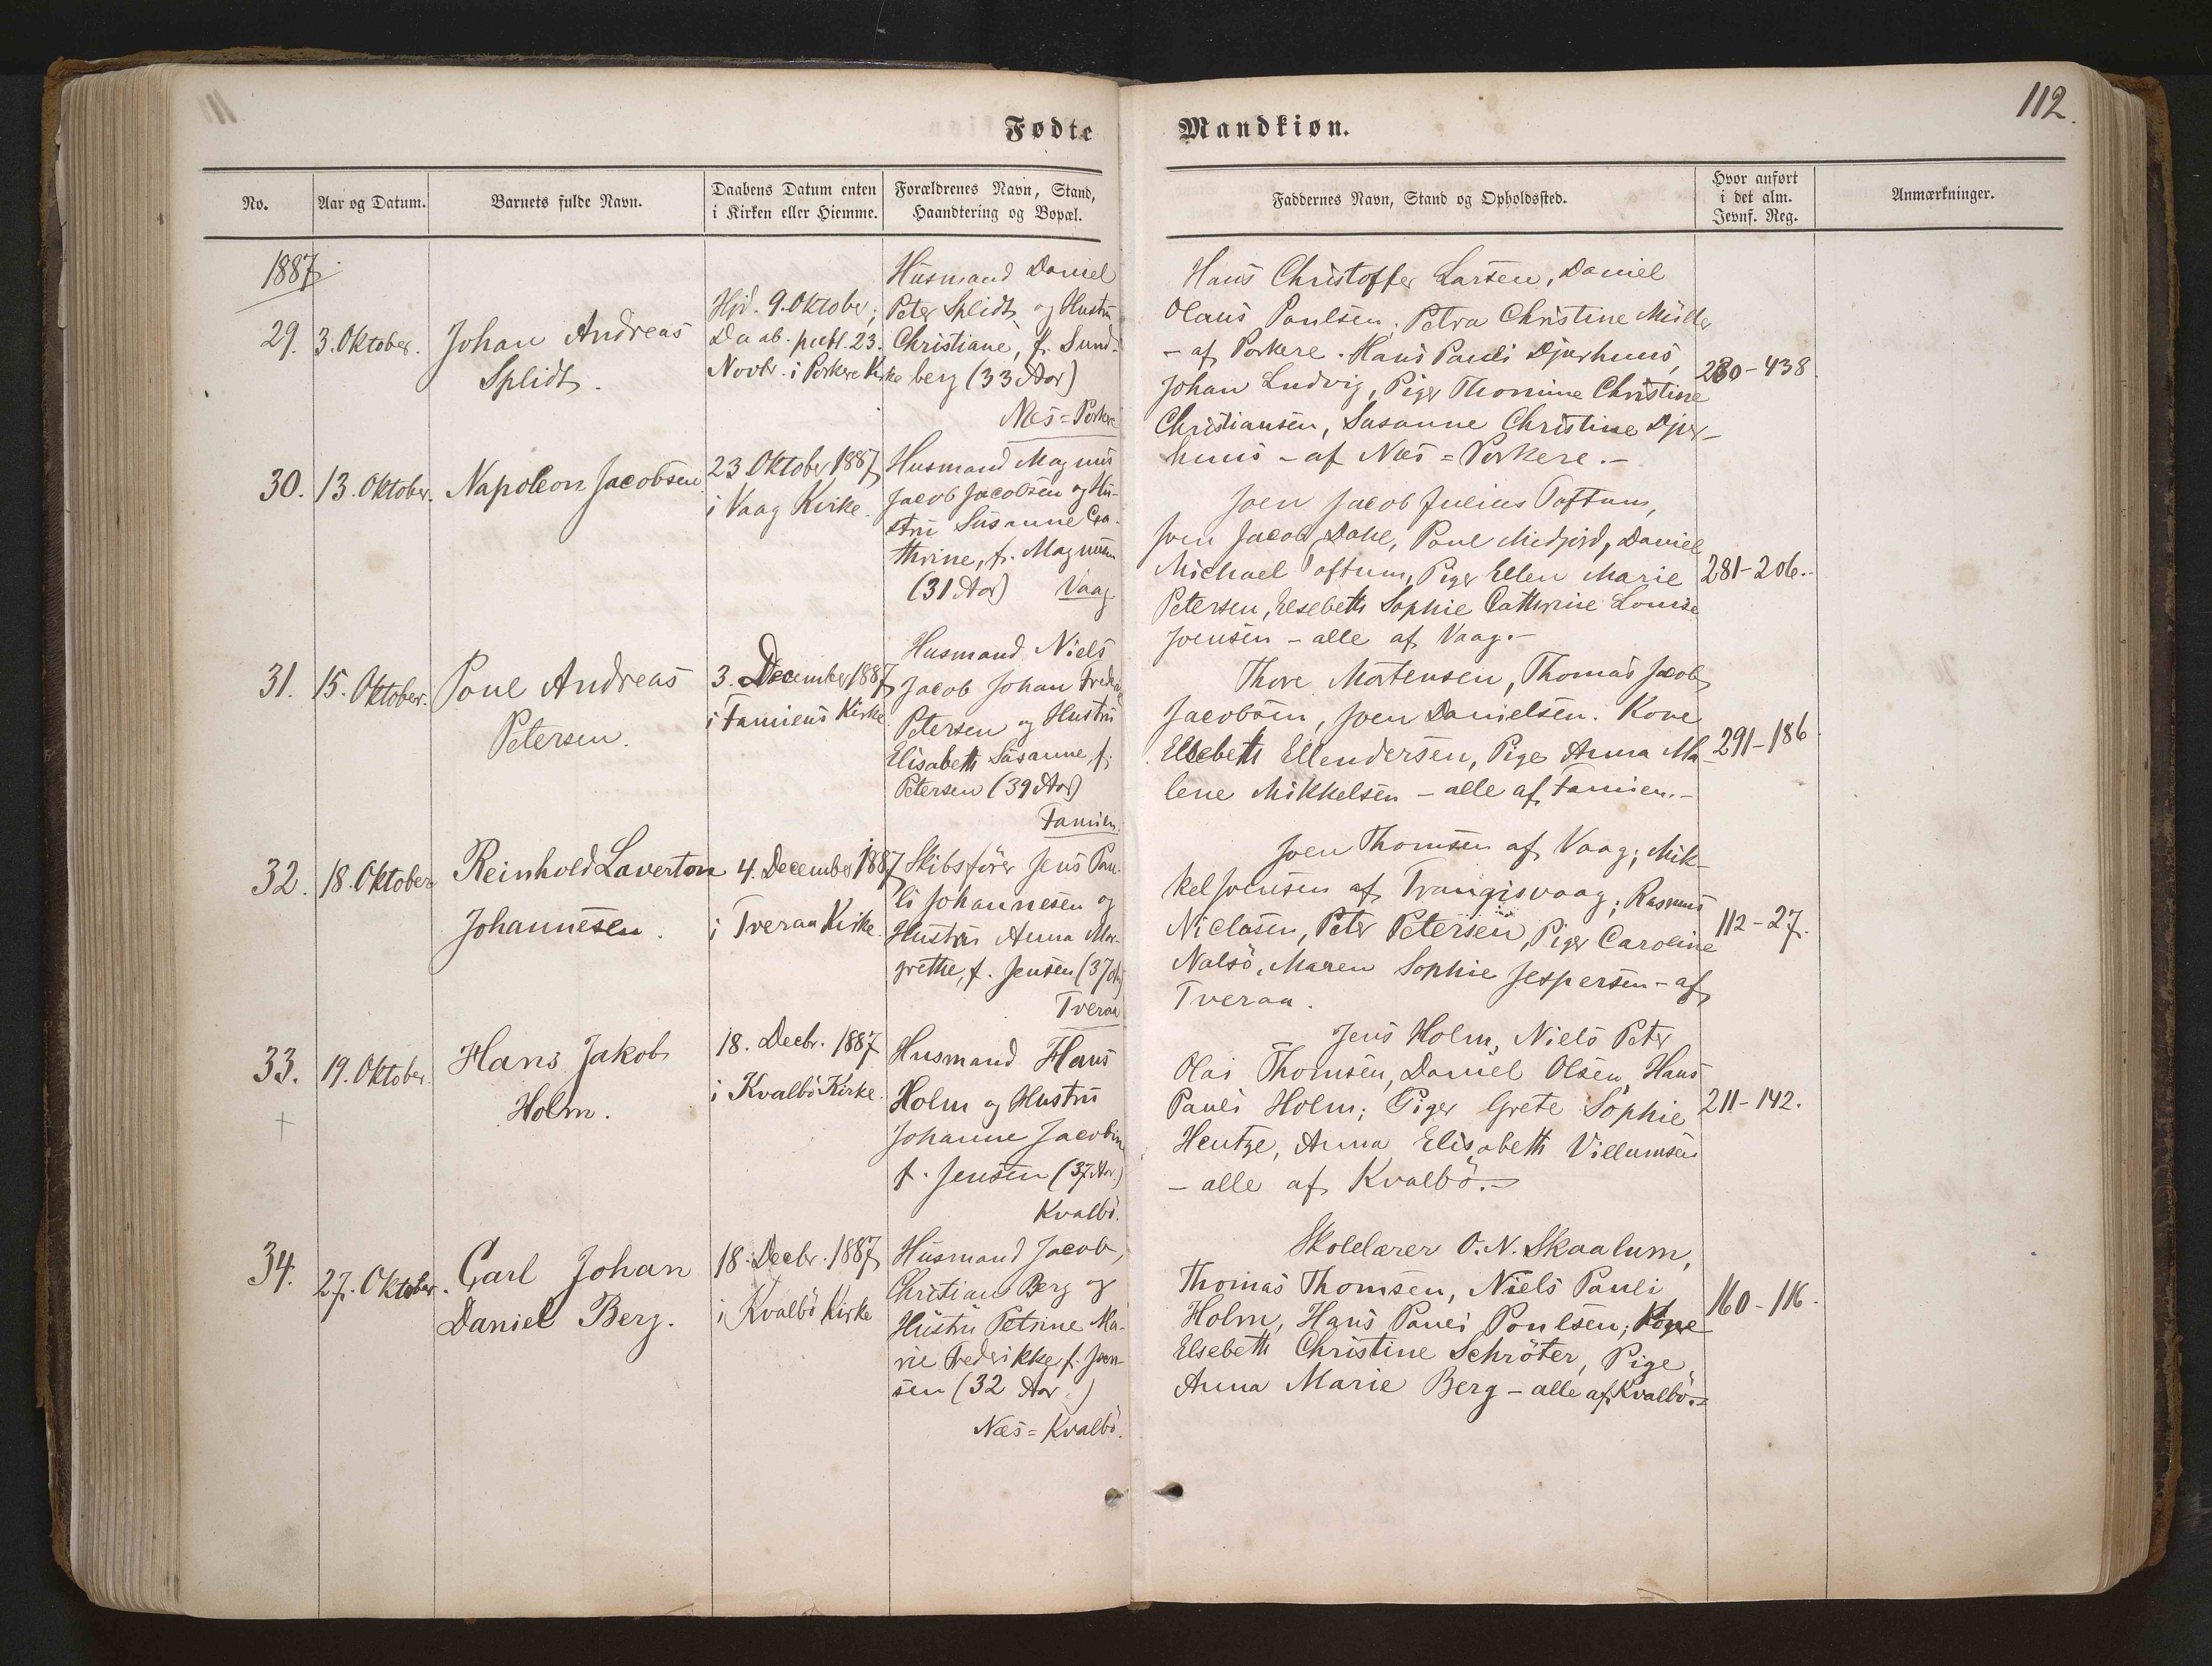 112.
Fødte Mandkiøn.
No.
Aar og Datum.
Barnets fulde Navn.
Daabens Datum enten
i Kirken eller Hiemme.
Forældrenes Navn, Stand,
Haandtering og Bopæl.
Faddernes Navn, Stand og Opholdssted.
Hvor anført
i det alm.
Jevnf. Reg.
Anmærkninger.
1887.
29.
3. Oktober.
Johan Andreas
Splidt.
Hjd. 9. Oktober;
Daab. publ. 23.
Novbr. i Porkere Kirke
Husmand Daniel
Peter Splidt og Hustru
Christiane, f. Sund-
berg (33 Aar)
Næs=Porkere
Hans Christoffer Larsen, Daniel
Olaus Poulsen, Petra Christine Müller
- af Porkere. Hans Pauli Djurhuus,
Johan Ludvig, Piger Thomine Christine
Christiansen, Susanne Christine Djur-
huus - af Næs=Porkere.-
280-438.
30.
13. Oktober.
Napoleon Jacobsen.
23 Oktober 1887
i Vaag Kirke.
Husmand Magnus
Jacob Jacobsen og Hu-
stru Susanne Ca-
thrine, f. Magnusen
(31 Aar) Vaag.
Joen Jacob Julius Toftum,
Joen Jacob Dahl, Poul Midjord, Daniel
Michael Toftum, Piger Ellen Marie
Petersen, Elsebeth Sophie Cathrine Louise
Joensen - alle af Vaag.-
281-206.-
31.
15. Oktober.
Poul Andreas
Petersen.
3. December 1887
i Famiens Kirke
Husmand Niels
Jacob Johan Fredrik
Petersen og Hustru
Elisabeth Susanne, f.
Petersen (39 Aar)
Famien.
Thore Mortensen, Thomas Jacob
Jacobsen, Joen Danielsen. Kone
Elsebeth Ellendersen, Pige Anna Ma-
lene Mikkelsen - alle af Famien.-
291-186.
32.
18. Oktober
Reinhold Laverton
Johannesen.
4. December 1887
i Tveraa Kirke.
Skibsfører Jens Pau-
li Johannesen og
Hustru Anna Mar-
grethe, f. Jensen (37 Aar)
Tveraa
Joen Thomsen af Vaag; Mik-
kel Joensen af Trangisvaag; Rasmus
Niclasen, Peter Petersen, Piger Caroline
Nolsö, Maren Sophie Jespersen - af
Tveraa.
112-27.
33.
19. Oktober.
Hans Jakob
Holm.
18. Decbr. 1887
i Kvalbö Kirke.
Husmand Hans
Holm og Hustru
Johanne Jacobine
f. Jensen (37 Aar)
Kvalbö.
Jens Holm, Niels Peter
Olai Thomsen, Daniel Olsen, Hans
Pauli Holm; Piger Grete Sophie
Hentze, Anna Elisabeth Villumsen
- alle af Kvalbö.-
211-142.
+
34.
27. Oktober.
Carl Johan
Daniel Berg.
18. Decbr. 1887
i Kvalbö Kirke
Husmand Jacob
Christian Berg og
Hustru Petrine Ma-
rie Frederikke f. Joen-
sen (32 Aar.)
Næs=Kvalbö.
Skolelærer O. N. Skaalum,
Thomas Thomsen, Niels Pauli
Holm, Hans Pauli Poulsen; Kone
Elsebeth Christine Schröter, Pige
Anna Marie Berg - alle af Kvalbö.-
160-116.